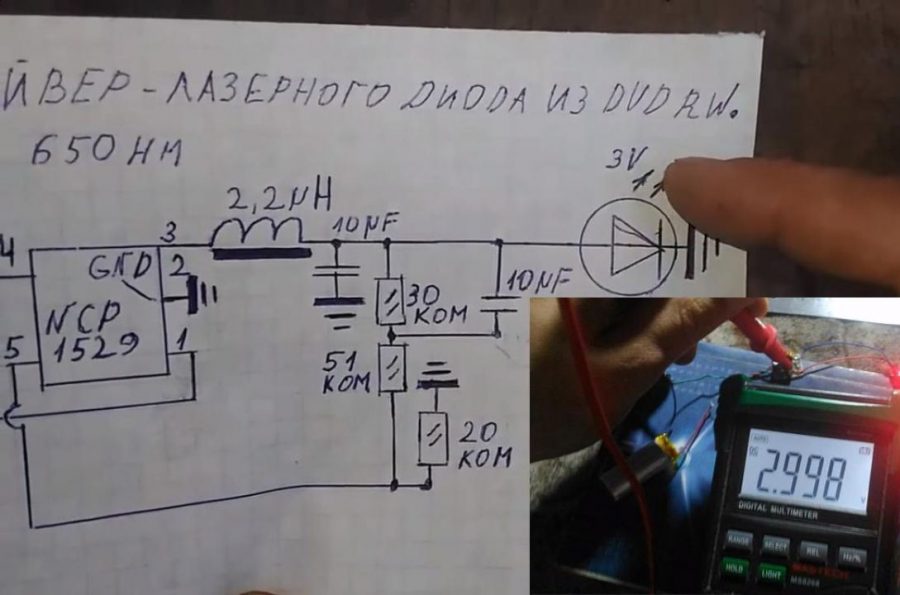 ЙВЕР - ЛАЗЕРНОГО ДИОДА ИЗ DVD RW.
650 НМ
3V
2,2µH
10µF
4
3
GND
2
10µF
30
КОМ
NCP
1529
5
1
51
КОМ
20
КОМ
2.998
V
DIGITAL MULTIMETER
RANGE
SELECT
REL
Hz/%
HOLD
LIGHT
MASTECH
MS8268